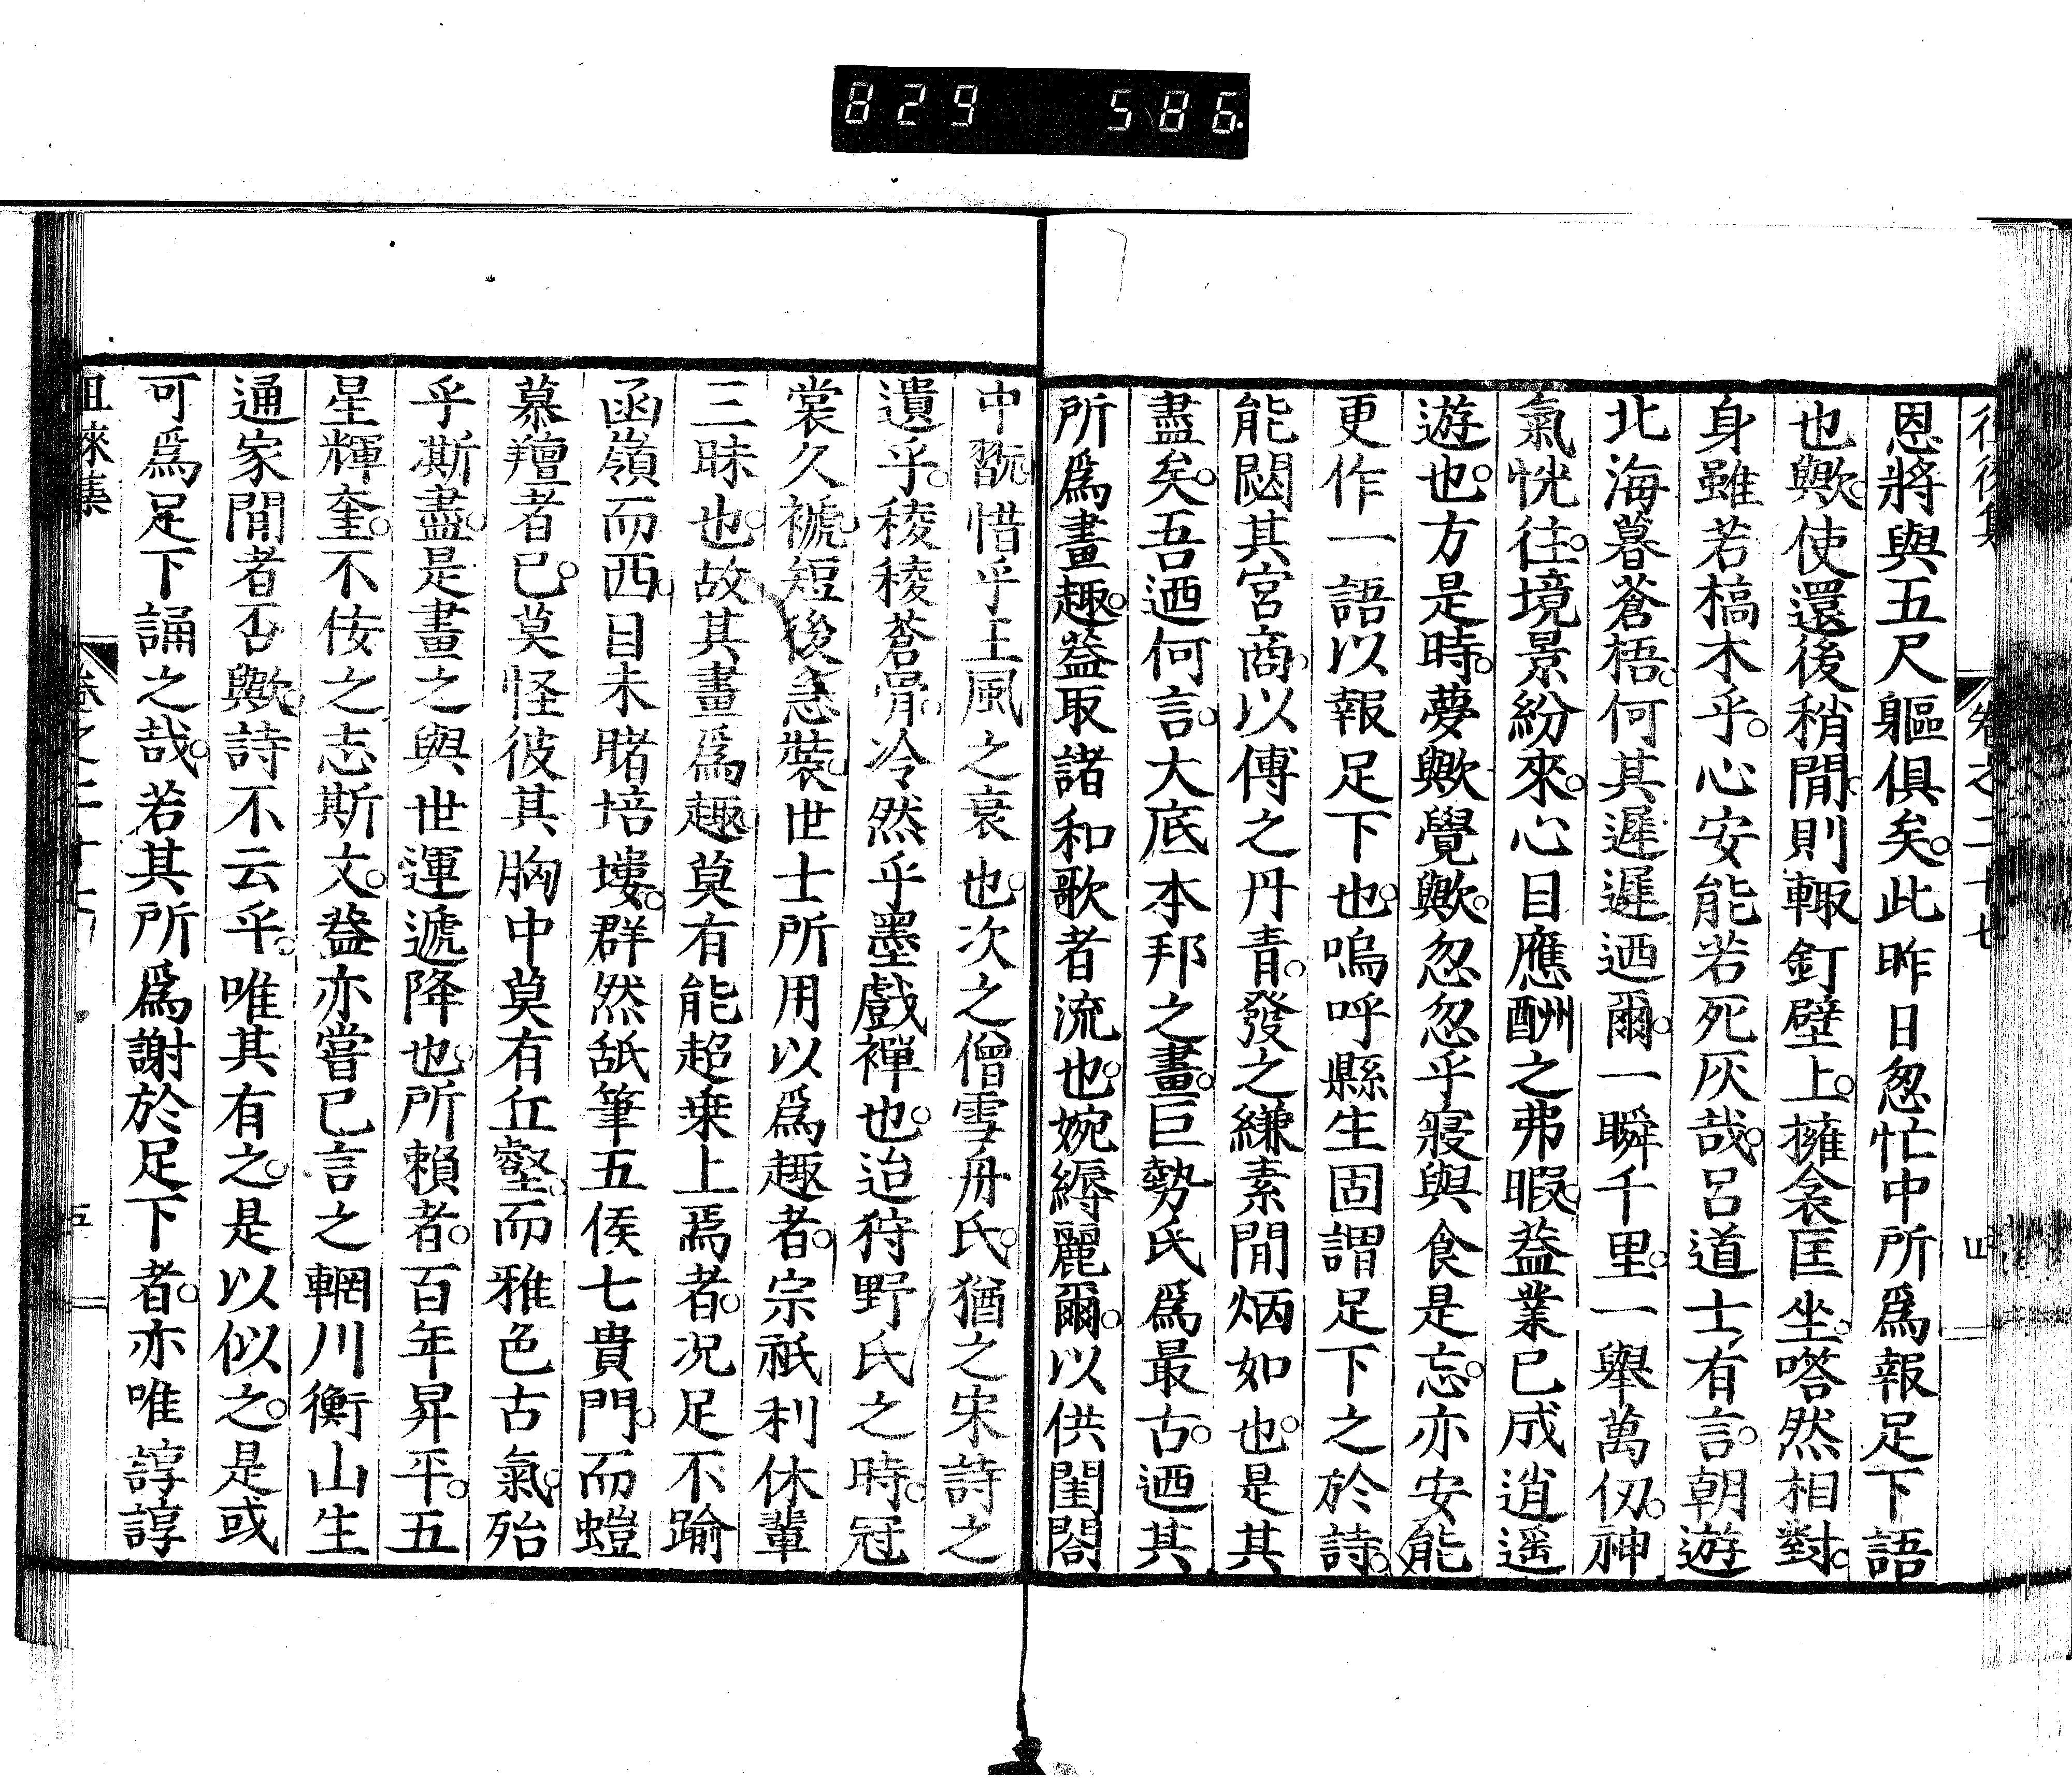 829 586
恩將與五尺軀俱矣此昨日怱忙中所爲報足下語
也歟使還後稍閒則輙釘壁上擁衾匡坐嗒然相對
身雖若槁木乎心安能若死灰哉呂道士有言朝遊
北海暮蒼梧何其遲遲迺爾一瞬千里一舉萬仭神
氣恍往境景紛來心目應酬之弗暇葢業已成逍遥
遊也方是時夢歟覺歟忽忽乎寢與食是忘亦安能
更作一語以報足下也嗚呼縣生固謂足下之於詩
能閟其宮商以傳之丹青發之縑素閒炳如也是其
盡矣吾迺何言大底本邦之畫巨勢氏爲最古迺其
所爲畫趣葢取諸和歌者流也婉縟麗爾以供閨閤
中翫惜乎王風之衰也次之僧雪舟氏猶之宋詩之
遺乎稜稜蒼骨冷然乎墨戲禪也迨狩野氏之時冠
裳久褫短後急裝世士所用以爲趣者宗祇利休輩
三昧也故其畫爲趣莫有能超乗上焉者况足不踰
函嶺而西目未睹培塿群然舐筆五侯七貴門而螘
慕羶者已莫怪彼其胸中莫有丘壑而雅色古氣殆
乎斯盡是畫之與世運遞降也所賴者百年昇平五
星輝奎不佞之志斯文葢亦嘗已言之輞川衡山生
通家閒者否歟詩不云乎唯其有之是以似之是或
可爲足下誦之哉若其所爲謝於足下者亦唯諄諄